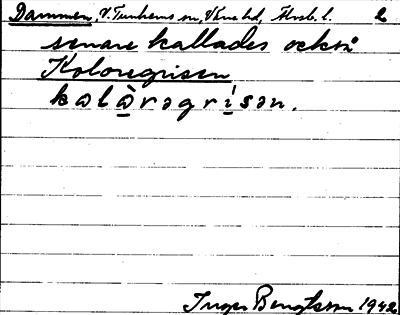 Dammen, V. Tunhems sn, Väne hd, Älvsb. l. 2
senare kallades också
Koloregrisen
kəlàrəgrísən.
Inger Bengtsson 1942